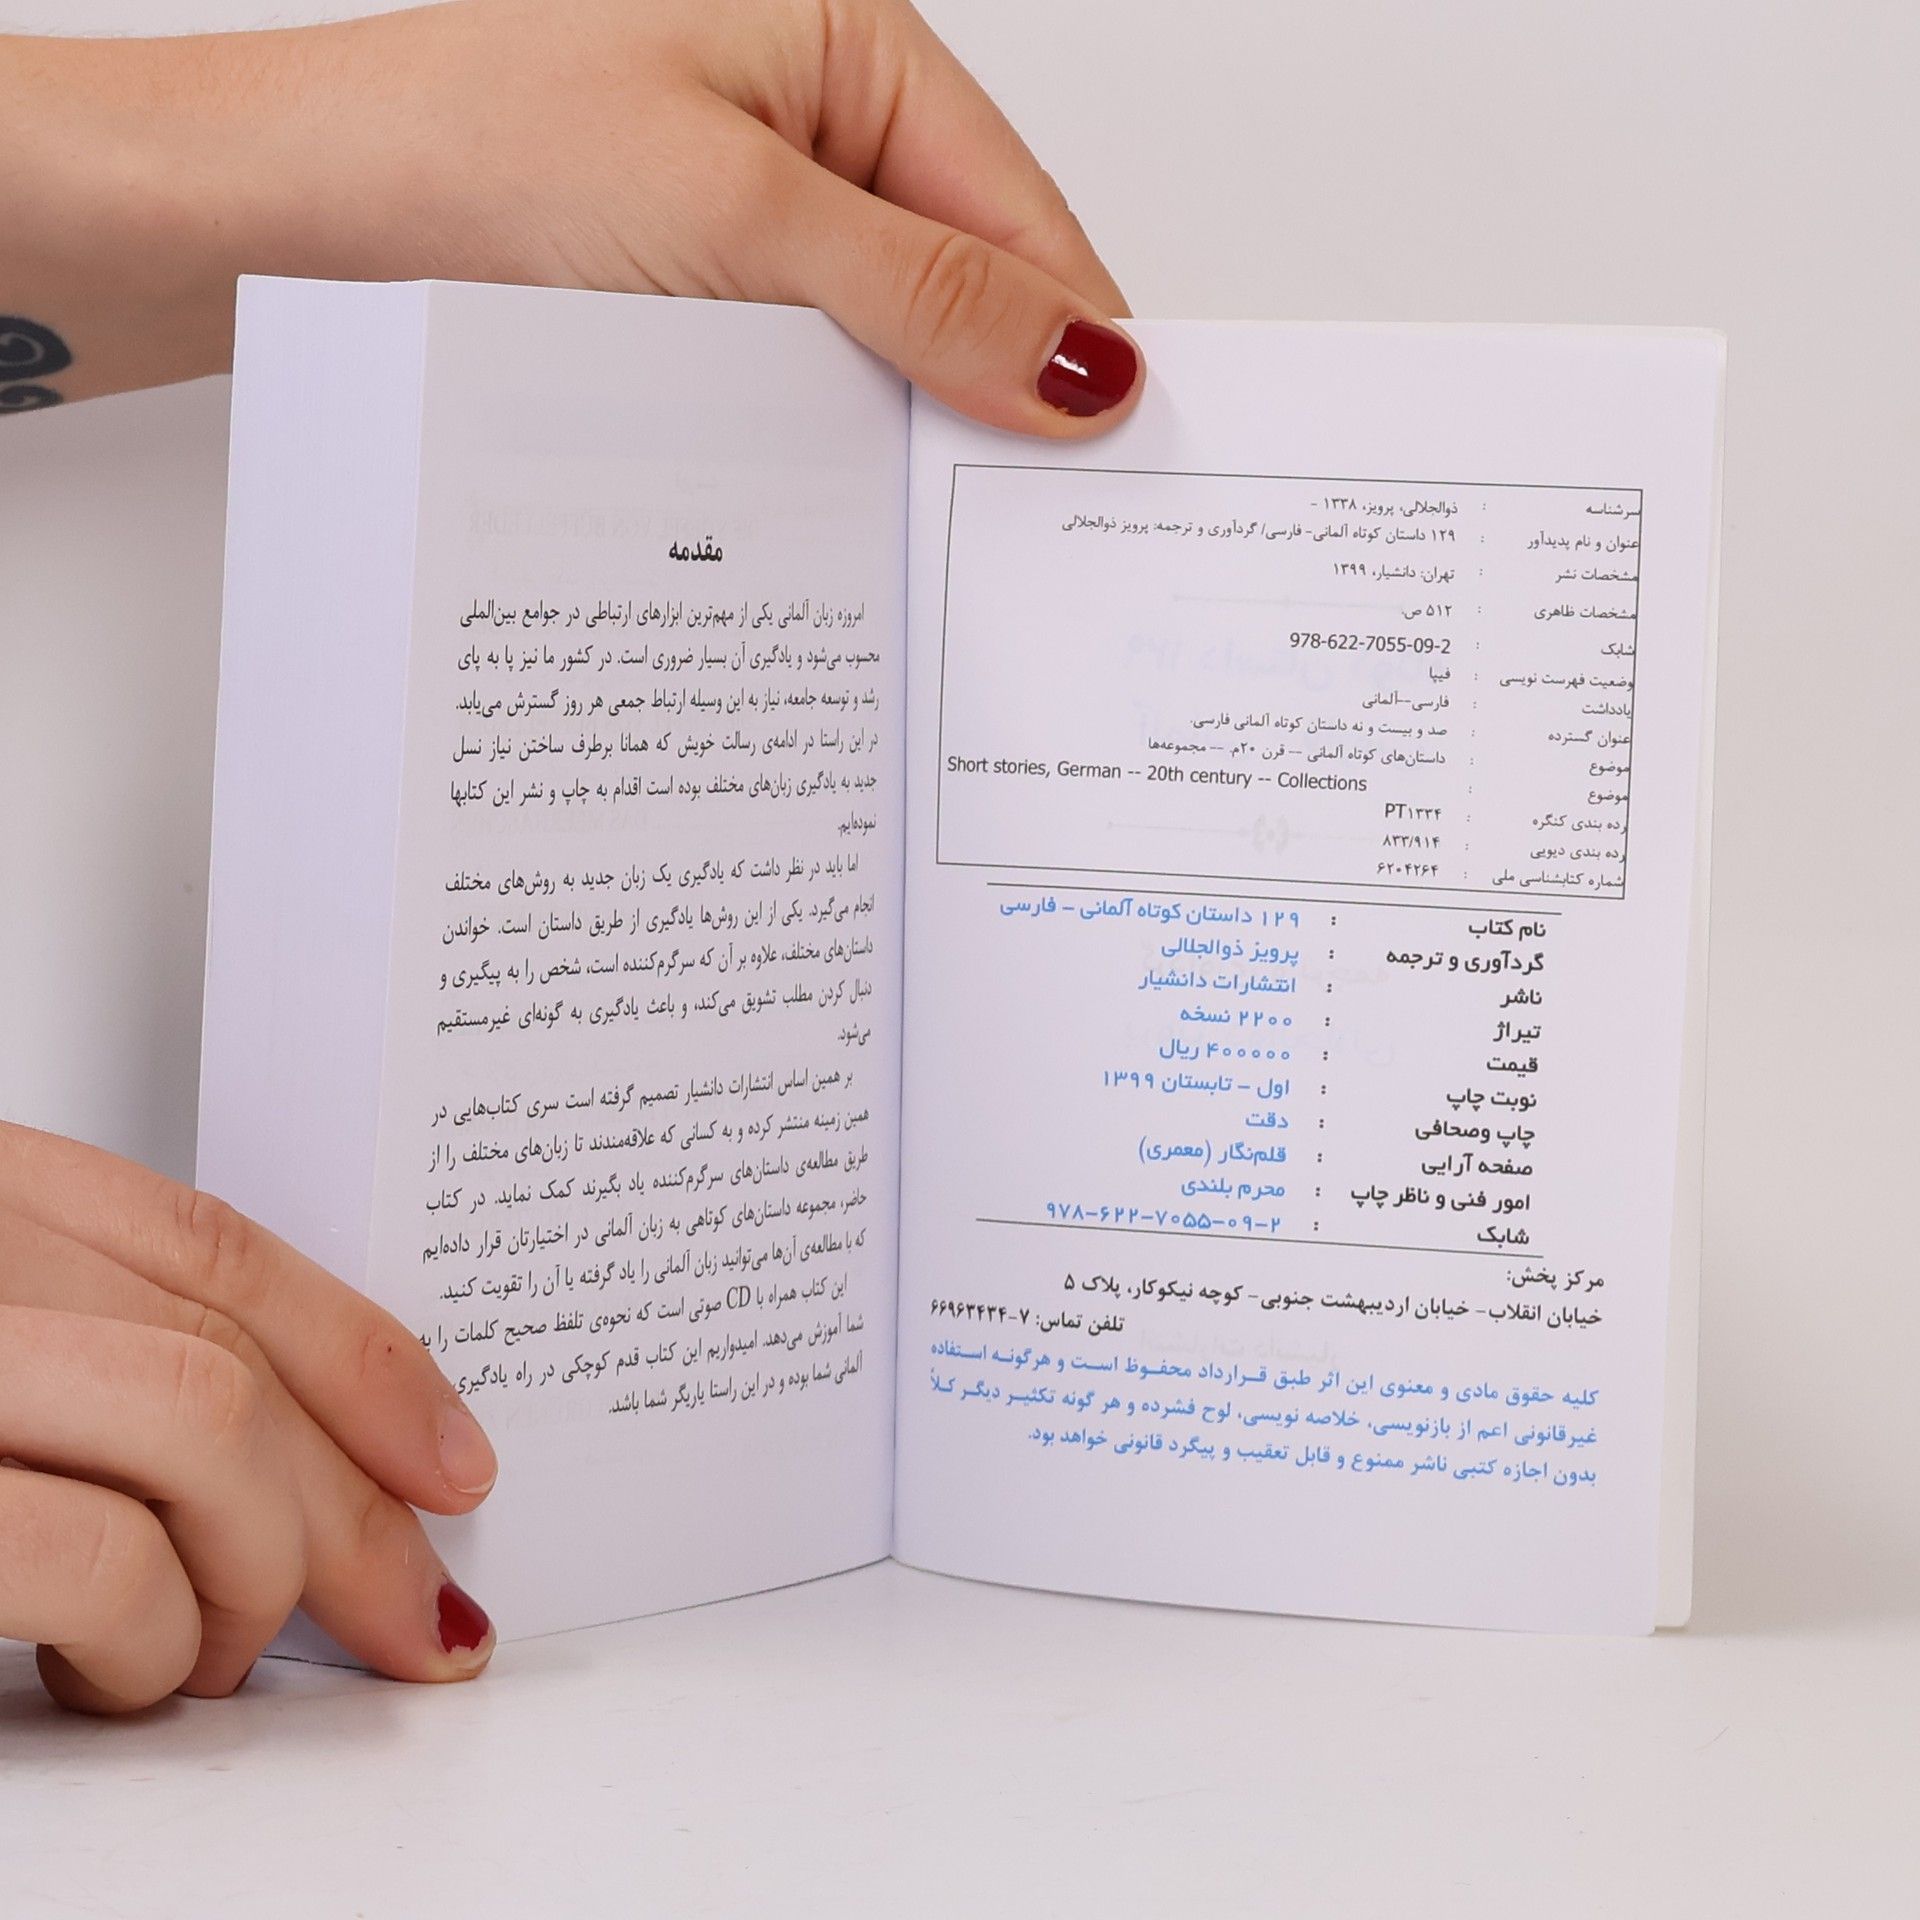 سرشناسه : ذوالجلالی، پرویز، ۱۳۳۸ -
عنوان و نام پدیدآور : ۱۲۹ داستان کوتاه آلمانی- فارسی/ گردآوری و ترجمه: پرویز ذوالجلالی
مشخصات نشر : تهران: دانشیار، ۱۳۹۹
مشخصات ظاهری : ۵۱۲ ص.
شابک : 978-622-7055-09-2
وضعیت فهرست نویسی : فیپا
یادداشت : فارسی--آلمانی
عنوان گسترده : صد و بیست و نه داستان کوتاه آلمانی فارسی.
موضوع : داستان‌های کوتاه آلمانی -- قرن ۲۰م. -- مجموعه‌ها
موضوع : Short stories, German -- 20th century -- Collections
رده بندی کنگره : PT۱۳۳۴
رده بندی دیویی : ۸۳۳/۹۱۴
شماره کتابشناسی ملی : ۶۲۰۴۲۶۴
نام کتاب : ۱۲۹ داستان کوتاه آلمانی - فارسی
گردآوری و ترجمه : پرویز ذوالجلالی
ناشر : انتشارات دانشیار
تیراژ : ۲۲۰۰ نسخه
قیمت : ۴۰۰۰۰۰ ریال
نوبت چاپ : اول - تابستان ۱۳۹۹
چاپ وصحافی : دقت
صفحه آرایی : قلم‌نگار (معمری)
امور فنی و ناظر چاپ : محرم بلندی
شابک : ۹۷۸-۶۲۲-۷۰۵۵-۰۹-۲
مرکز پخش:
خیابان انقلاب- خیابان اردیبهشت جنوبی- کوچه نیکوکار، پلاک ۵
تلفن تماس: ۷-۶۶۹۶۳۴۳۴
کلیه حقوق مادی و معنوی این اثر طبق قرارداد محفوظ است و هرگونه استفاده
غیرقانونی اعم از بازنویسی، خلاصه نویسی، لوح فشرده و هر گونه تکثیر دیگر کلاً
بدون اجازه کتبی ناشر ممنوع و قابل تعقیب و پیگرد قانونی خواهد بود.
مقدمه
امروزه زبان آلمانی یکی از مهم‌ترین ابزارهای ارتباطی در جوامع بین‌المللی
محسوب می‌شود و یادگیری آن بسیار ضروری است. در کشور ما نیز پا به پای
رشد و توسعه جامعه، نیاز به این وسیله ارتباط جمعی هر روز گسترش می‌یابد.
در این راستا در ادامه‌ی رسالت خویش که همانا برطرف ساختن نیاز نسل
جدید به یادگیری زبان‌های مختلف بوده است اقدام به چاپ و نشر این کتابها
نموده‌ایم.
اما باید در نظر داشت که یادگیری یک زبان جدید به روش‌های مختلف
انجام می‌گیرد. یکی از این روش‌ها یادگیری از طریق داستان است. خواندن
داستان‌های مختلف، علاوه بر آن که سرگرم‌کننده است، شخص را به پیگیری و
دنبال کردن مطلب تشویق می‌کند، و باعث یادگیری به گونه‌ای غیرمستقیم
می‌شود.
بر همین اساس انتشارات دانشیار تصمیم گرفته است سری کتاب‌هایی در
همین زمینه منتشر کرده و به کسانی که علاقه‌مندند تا زبان‌های مختلف را از
طریق مطالعه‌ی داستان‌های سرگرم‌کننده یاد بگیرند کمک نماید. در کتاب
حاضر، مجموعه داستان‌های کوتاهی به زبان آلمانی در اختیارتان قرار داده‌ایم
که با مطالعه‌ی آن‌ها می‌توانید زبان آلمانی را یاد گرفته یا آن را تقویت کنید.
این کتاب همراه با CD صوتی است که نحوه‌ی تلفظ صحیح کلمات را به
شما آموزش می‌دهد. امیدواریم این کتاب قدم کوچکی در راه یادگیری
آلمانی شما بوده و در این راستا یاریگر شما باشد.